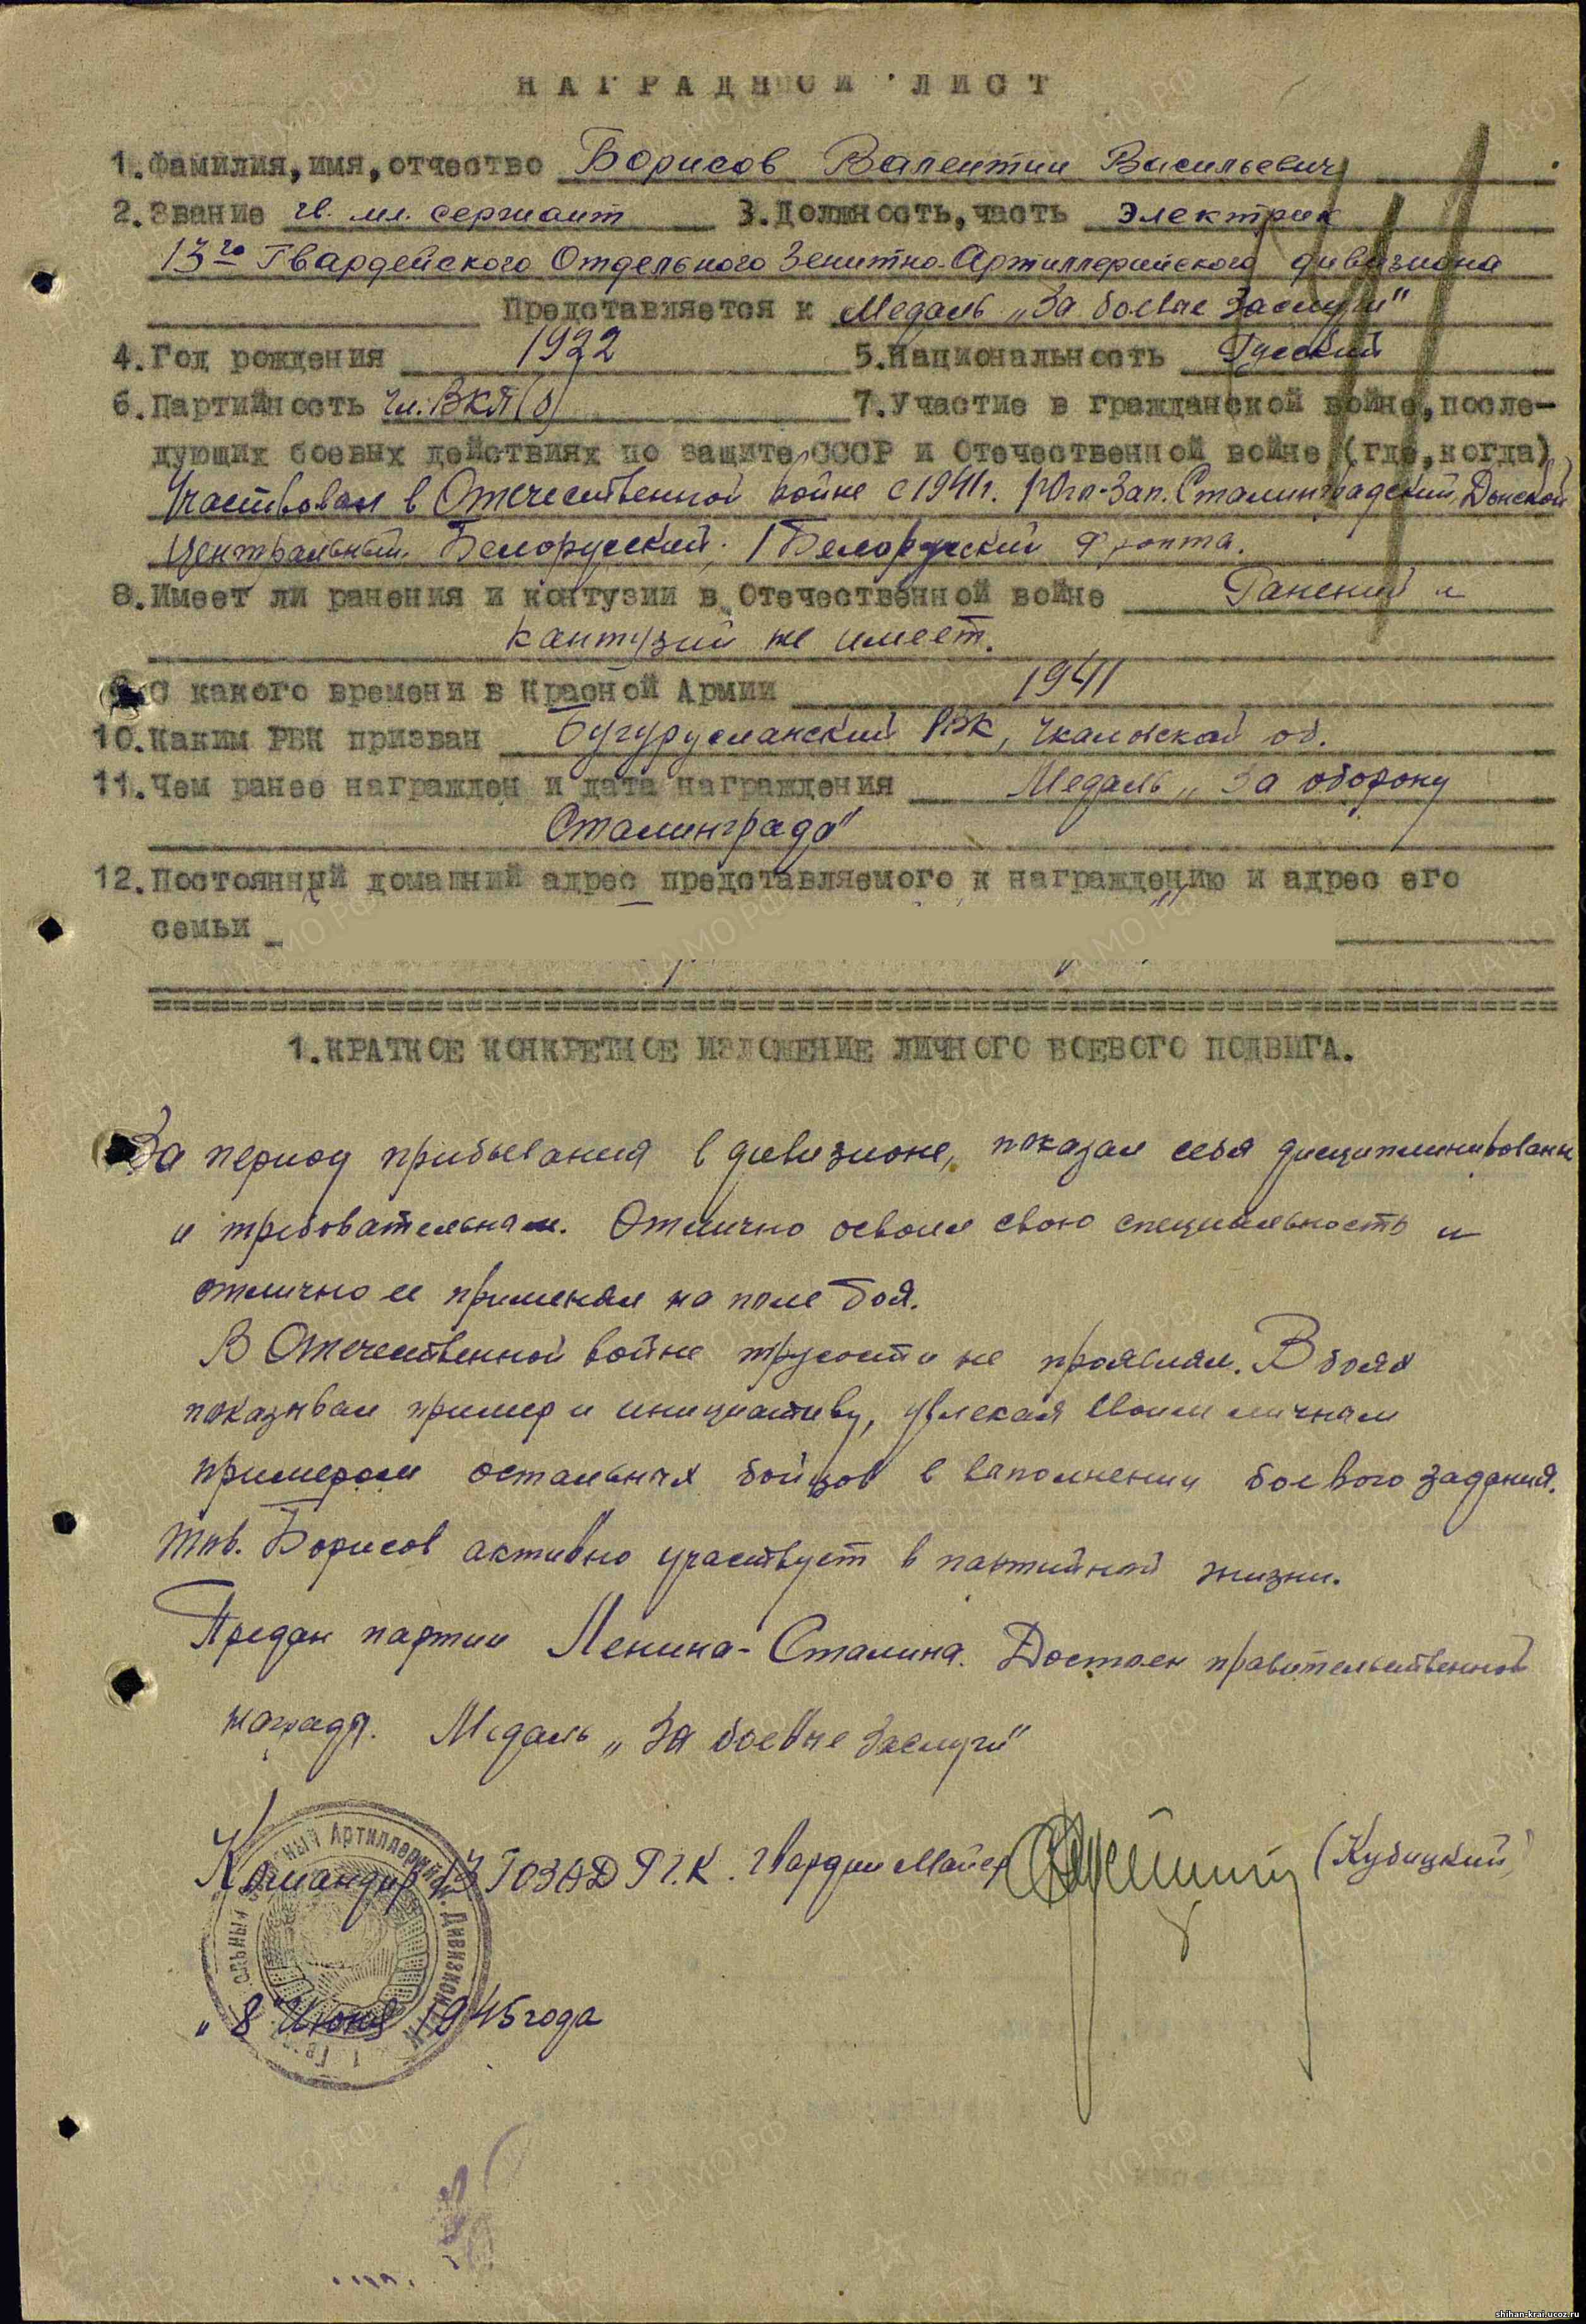 НАГРАДНОЙ ЛИСТ
1. Фамилия, имя, отчество Борисов Валентин Васильевич
2. Звание гв. мл. сержант 3. Должность, часть электрик
13го Гвардейского Отдельного Зенитно-Артиллерийского дивизиона
Представляется к Медаль „За боевые заслуги"
4. Год рождения 1922 5. Национальность Русский
6. Партийность чл. ВКП(б) 7. Участие в гражданской войне, после-
дующих боевых действиях по защите СССР и Отечественной войне (где, когда)
Участвовал в Отечественной войне с 1941г. Юго-Зап. Сталинградский, Донской
Центральный. Белорусский, 1 Белорусский фронта.
8. Имеет ли ранения и контузии в Отечественной войне Ранений и
кантузий не имеет.
9. С какого времени в Красной Армии 1941
10. Каким РВК призван Бугурусланский РВК, Чкаловской об.
11. Чем ранее награжден и дата награждения Медаль „За оборону
Сталинграда"
12. Постоянный домашний адрес представляемого к награждению и адрес его
семьи
1. КРАТКОЕ КОНКРЕТНОЕ ИЗЛОЖЕНИЕ ЛИЧНОГО БОЕВОГО ПОДВИГА.
За период прибывания в дивизионе, показал себя дисциплинированн
и требовательным. Отлично освоил свою специальность и
отлично ее применял на поле боя.
В Отечественной войне трусости не проявлял. В боях
показывал пример и инициативу, увлекая своим личным
примером остальных бойцов в выполнении боевого задания.
тов. Борисов активно участвует в партийной жизни.
Предан партии Ленина-Сталина. Достоен правительственной
награды. Медаль „За боевые заслуги"
Командир 13 ГОЗАД РГК. гвардии Майор (Кубицкий)
Артиллерийск. Дивизион РГК
„8" Июня 1945 года
ЦАМО РФ
shihan-krai.ucoz.ru